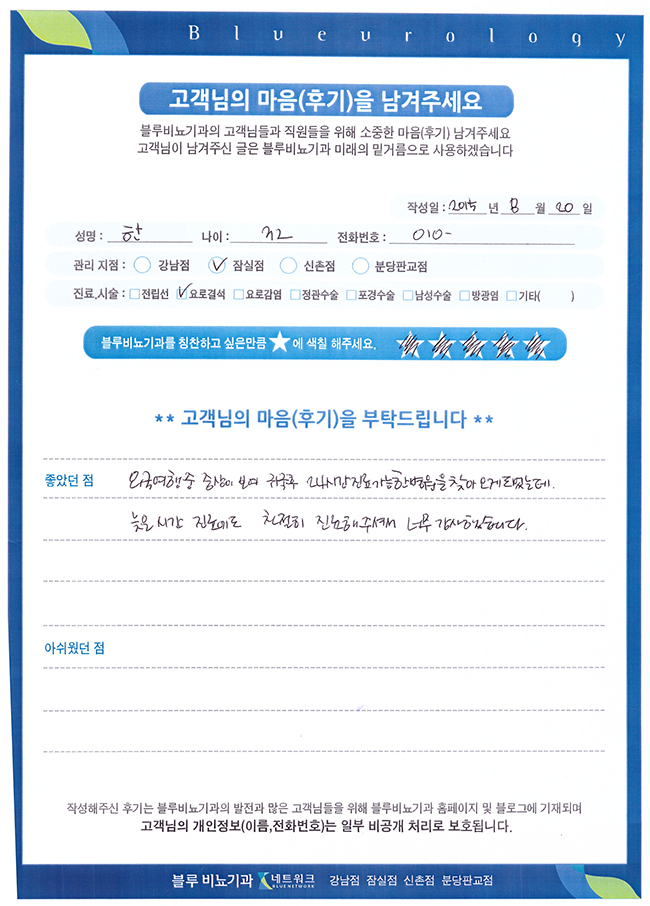 Blueurology
고객님의 마음(후기)을 남겨주세요
블루비뇨기과의 고객님들과 직원들을 위해 소중한 마음(후기) 남겨주세요
고객님이 남겨주신 글은 블루비뇨기과 미래의 밑거름으로 사용하겠습니다
작성일 : 2015 년 8 월 20 일
성명 : 한 나이 : 32 전화번호 : 010-
관리 지점 : 강남점 잠실점 신촌점 분당판교점
진료,시술 : 전립선 요로결석 요로감염 정관수술 포경수술 남성수술 방광염 기타( )
블루비뇨기과를 칭찬하고 싶은만큼 ★에 색칠 해주세요. ★★★★★
** 고객님의 마음(후기)을 부탁드립니다 **
좋았던 점 외국여행중 증상이 보여 귀국후 24시간 진료가능한 병원을 찾아 오게 되었는데.
늦은 시간 진료에도 친절히 진료해주셔서 너무 감사했습니다.
아쉬웠던 점
작성해주신 후기는 블루비뇨기과의 발전과 많은 고객님들을 위해 블루비뇨기과 홈페이지 및 블로그에 기재되며
고객님의 개인정보(이름,전화번호)는 일부 비공개 처리로 보호됩니다.
블루 비뇨기과 네트워크 BLUE NETWORK 강남점 잠실점 신촌점 분당판교점